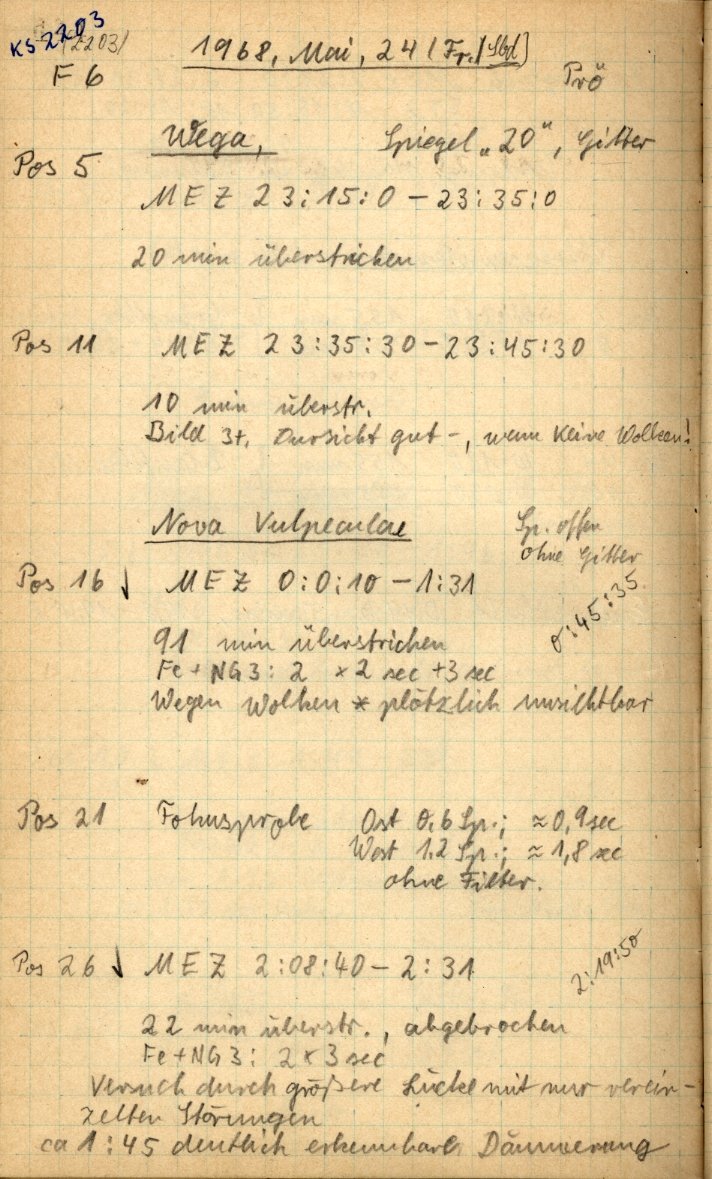 KS 2203 (2203)
1968, Mai, 24 (Fr./Sbd)
F 6
Prö
Wega, Spiegel „20", Gitter
Pos 5
MEZ 23:15:0 – 23:35:0
20 min überstrichen
Pos 11 MEZ 23:35:30 – 23:45:30
10 min überstr.
Bild 3+, Dursicht gut –, wenn keine Wolken!
Nova Vulpeculae Sp. offen
ohne Gitter
Pos 16 ↓ MEZ 0:0:10 – 1:31
0:45:35
91 min überstrichen
Fe + NG3: 2 × 2 sec + 3 sec
Wegen Wolken * plötzlich unsichtbar
Pos 21 Fokusprobe Ost 0,6 Sp.; ≈ 0,9 sec
West 1.2 Sp.; ≈ 1,8 sec
ohne Filter.
Pos 26 ↓ MEZ 2:08:40 – 2:31
2:19:50
22 min überstr., abgebrochen
Fe + NG3: 2 × 3 sec
Versuch durch größere Lücke mit nur verein-
zelten Störungen
ca 1:45 deutlich erkennbare Dämmerung